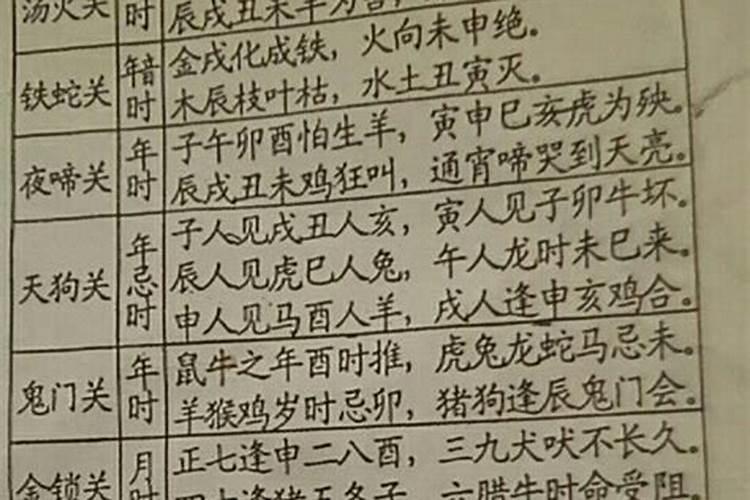 汤火关 时 辰戌丑未羊为
铁蛇关 年音时 金戌化成铁，火向未申绝。
木辰枝叶枯，水土丑寅灭。
夜啼关 年时 子午卯酉怕生羊，寅申巳亥虎为殃。
辰戌丑未鸡狂叫，通宵啼哭到天亮。
天狗关 年忌时 子人见戌丑人亥，寅人见子卯牛坏。
辰人见虎巳人兔，午人龙时未巳来。
申人见马酉人羊，戌人逢申亥鸡合。
鬼门关 年时 鼠牛之年酉时推，虎兔龙蛇马忌未。
羊猴鸡岁时忌卯，猪狗逢辰鬼门会。
金锁关 月时 正七逢申二八酉，三九犬吠不长久。
四十逢猪五冬子，六腊牛时命受阻。